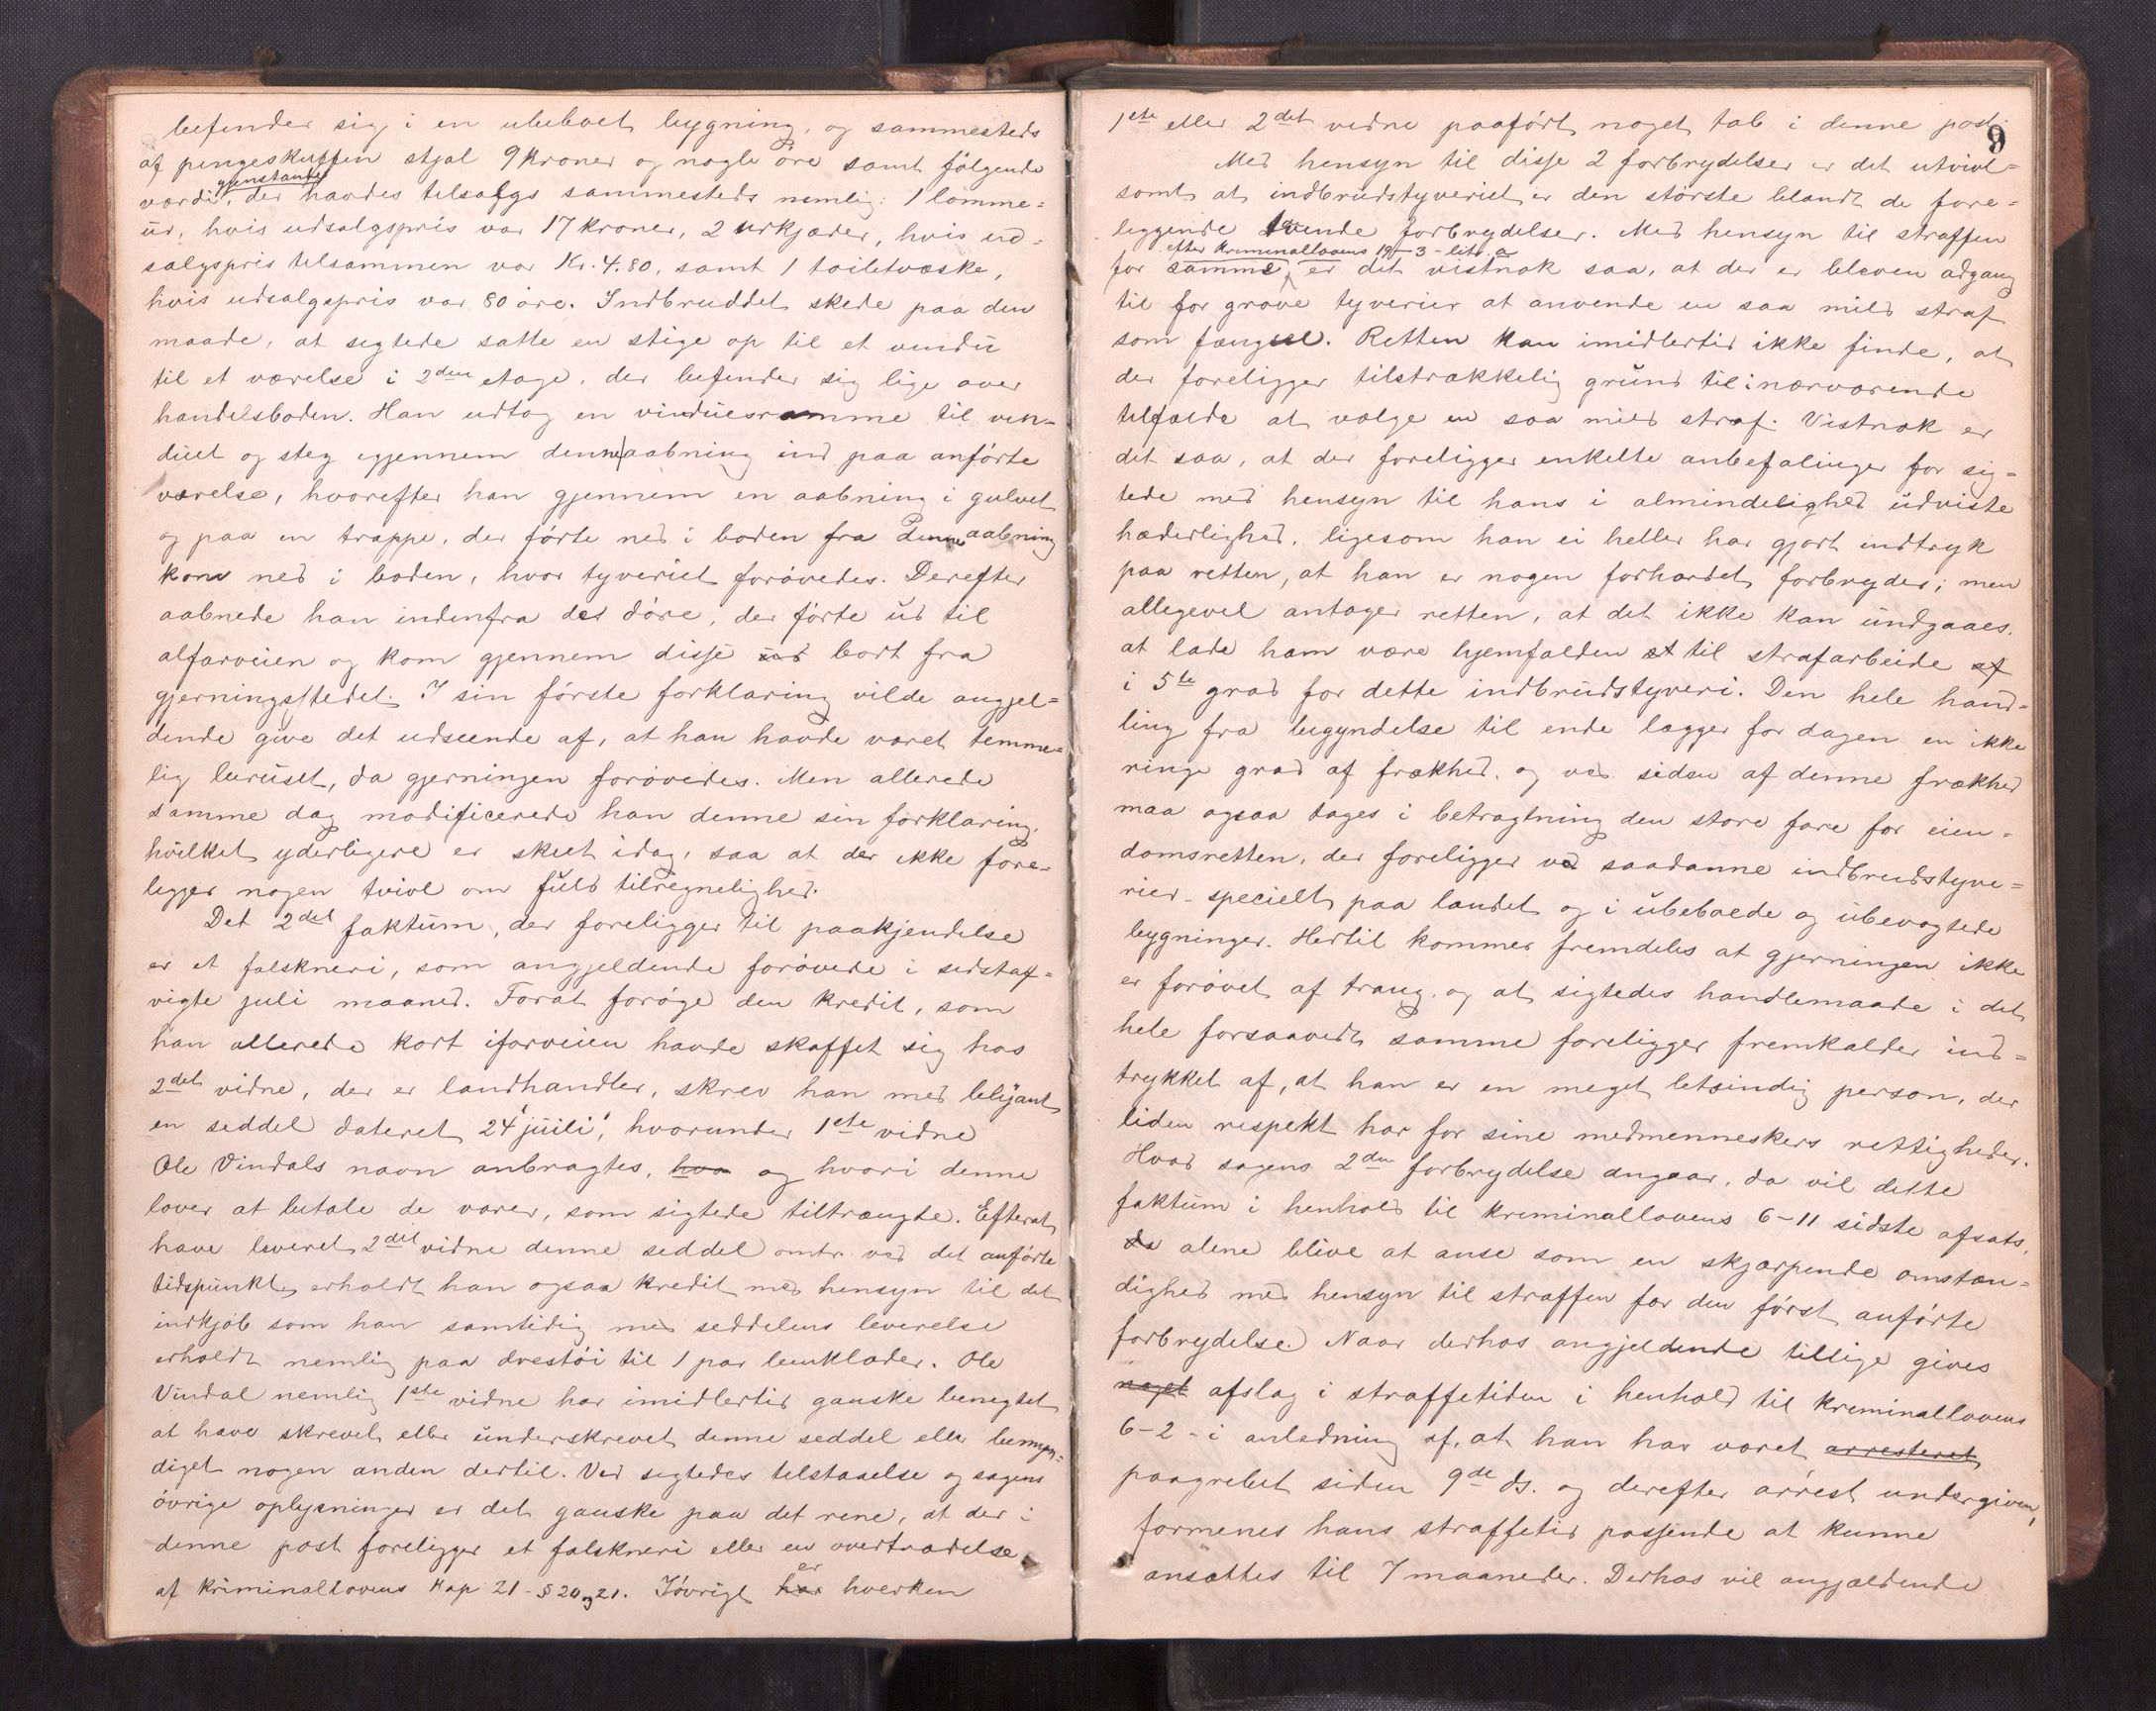 befinder sig i en ubeboet bygning, og sammesteds
af pengeskuffen stjal 9 kroner og nogle öre samt fölgende
gjenstande
værdi, der havdes tilsalgs sammesteds nemlig: 1 lomme=
ur, hvis udsalgspris var 17 kroner, 2 urkjæder, hvis ud=
salgspris tilsammen var Kr. 4.80, samt 1 toiletvæske,
hvis udsalgspris var 80 öre. Indbruddet skede paa den
maade, at sigtede satte en stige op til et vindu
til et værelse i 2den etage, der befinder sig lige over
handelsboden. Han udtog en vinduesramme til vin=
duet og steg igjennem denne aabning ind paa anförte
værelse, hvorefter han gjennem en aabning i gulvet
og paa en trappe, der förte ned i boden fra denne aabning
kom ned i boden, hvor tyveriet forövedes. Derefter
aabnede han indenfra det döre, der förte ud til
alfarveien og kom gjennem disse ud bort fra
gjerningsstedet. I sin förste forklaring vilde angjel=
dende give det udseende af, at han havde været temme=
lig beruset, da gjerningen forövedes. Men allerede
samme dag modificerede han denne sin forklaring,
hvilket yderligere er skeet idag, saa at der ikke fore=
ligger nogen tvivl om fuld tilregnelighed.
Det 2det faktum, der foreligger til paakjendelse
er et falskneri, som angjeldende forövede i sidstaf=
vigte juli maaned. Forat foröge den kredit, som
han allerede kort iforveien havde skaffet sig hos
2det vidne, der er landhandler, skrev han med blyant
en seddel dateret 24' juili', hvorunder 1ste vidne
Ole Vindals navn anbragtes, hvo og hvori denne
lover at betale de varer, som sigtede tiltrængte. Efterat
have leveret 2det vidne denne seddel omtr. ved det anförte
tidspunkt, erholdt han ogsaa kredit med hensyn til det
indkjöb som han samtidig med seddelens leverelse
erholdt nemlig paa drestöi til 1 par benklæder. Ole
Vindal nemlig 1ste vidne har imidlertid ganske benegtet
at have skrevet eller underskrevet denne seddel eller bemyn=
diget nogen anden dertil. Ved sigtedes tilstaaelse og sagens
övrige oplysninger er det ganske paa det rene, at der i
denne post foreligger et falskneri eller en overtrædelse
af kriminallovens Kap 21 - § 20 og 21. Iövrigt har er hverken
9
1ste eller 2det vidne paafört noget tab i denne post.
Med hensyn til disse 2 forbrydelser er det utvivl=
somt at indbrudstyveriet er den störste blandt de fore=
liggende tvende forbrydelser. Med hensyn til straffen
efter kriminallovens 19-3- litr. a
for samme er det vistnok saa, at der er bleven adgang
til for grove tyverier at anvende en saa mild straf
som fængsel. Retten kan imidlertid ikke finde, at
der foreligger tilstrækkelig grund til i nærværende
tilfælde at vælge en saa mild straf. Vistnok er
det saa, at der foreligger enkelte anbefalinger for sig=
tede med hensyn til hans i almindelighed udviste
hæderlighed, ligesom han ei heller har gjort indtryk
paa retten, at han er nogen forhærdet forbryder; men
allegevel antager retten, at det ikke kan undgaaes,
at lade ham være hjemfalden et til strafarbeide af
i 5te grad for dette indbrudstyveri. Den hele hand=
ling fra begyndelse til ende lægger for dagen en ikke
ringe grad af frækhed, og ved siden af denne frækhed
maa ogsaa tages i betragtning den store fare for eien=
domsretten, der foreligger ved saadanne indbrudstyve=
rier - specielt paa landet og i ubeboede og ubevogtede
bygninger. Hertil kommer fremdeles at gjerningen ikke
er forövet af trang, og at sigtedes handlemaade i det
hele forsaavidt samme foreligger fremkalder ind=
trykket af, at han er en meget letsindig person, der
liden respekt har for sine medmenneskers rettigheder.
Hvad sagens 2den forbrydelse angaar, da vil dette
faktum i henhold til kriminallovens 6-11 sidste afsats,
da alene blive at anse som en skjærpende omstæn=
dighed med hensyn til straffen for den först anförte
forbrydelse. Naar derhos angjeldende tillige gives
noget afslag i straffetiden i henhold til kriminallovens
6-2 - i anledning af, at han har været arresteret
paagrebet siden 9de ds. og derefter arrest undergiven,
formenes hans straffetid passende at kunne
ansættes til 7 maaneder. Derhos vil angjældende